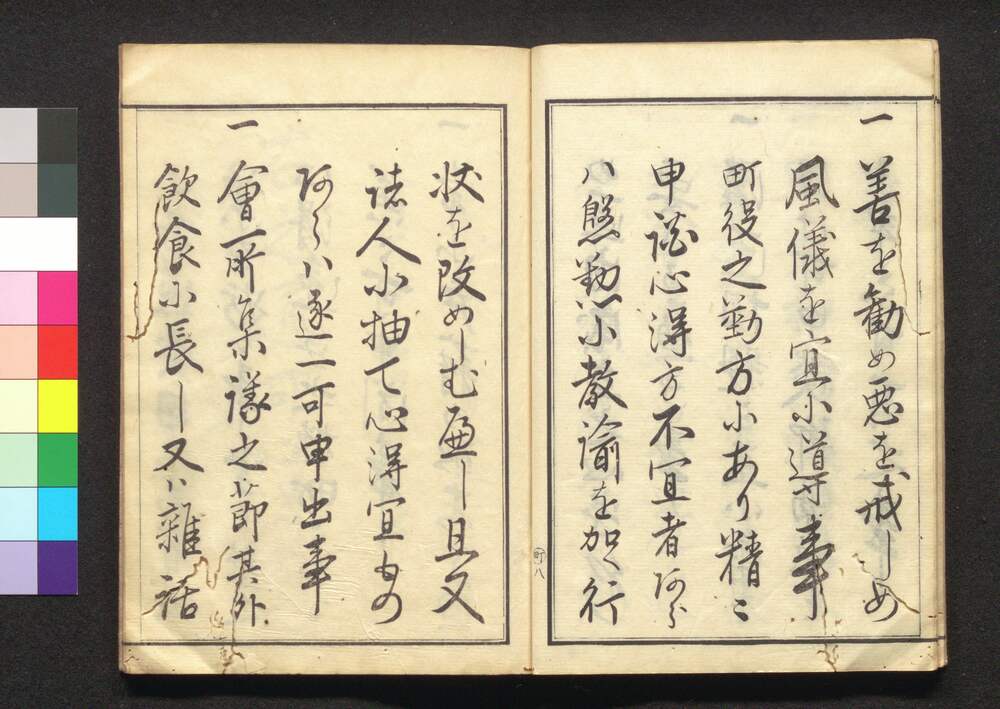 一 善を勧め悪を戒しめ
風儀を宜小導事
町役之勤方小あり精々
申諭心得方不宜者阿ら
ハ慇懃小教諭を加へ行
状を改めしむ遍し且又
諸人小抽て心得宜もの
阿らハ逐一可申出事
一 會所集議之節其外
飲食小長し又ハ雑話
町八